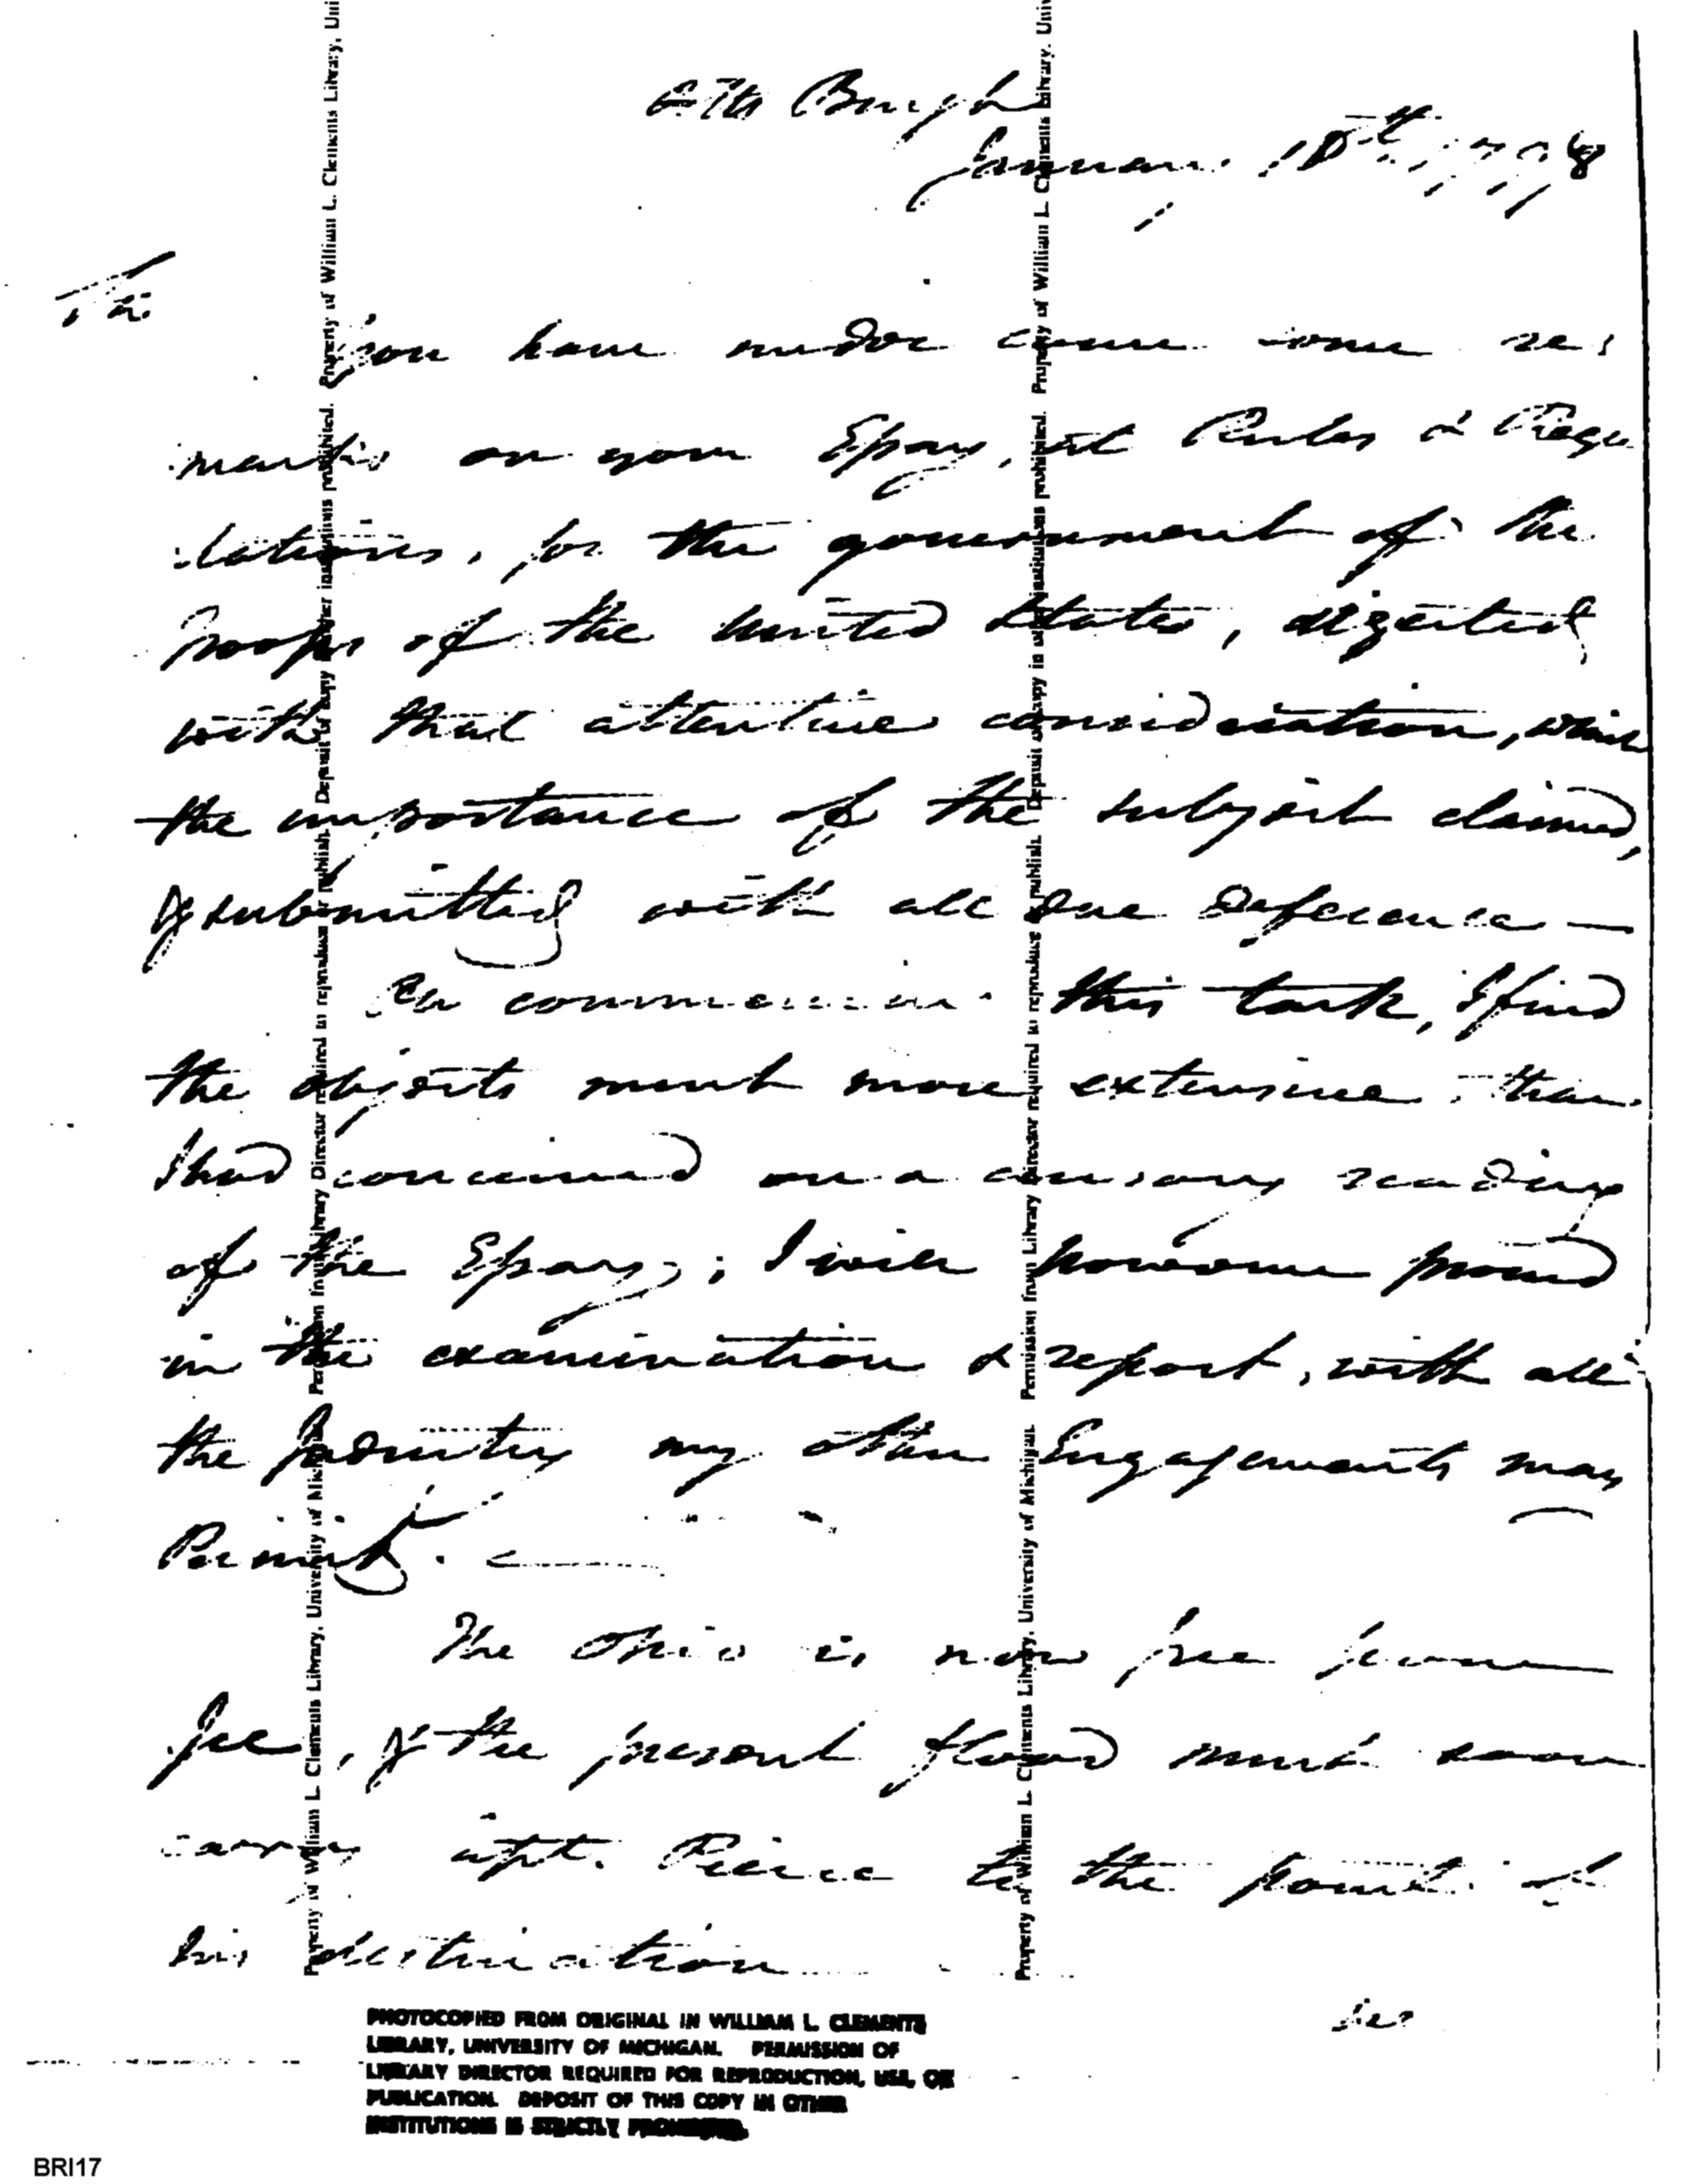 Pitts Burgh
January 18th. 1798
Sir
You have under cover some re=
marks on your Essay, at Rules & Regu
lations, for the government of the
Troops of the United States, digested
with that attentive consideration, which
the importance of the subject claimed,
& submitted with all due deference —
In commencing this task, I find
the objects much more extensive than
I had conceived on a cursory reading
of the Essay; I will however proceed
in the examination & report, with all
the industry my other Engagements may
Permit. —
The Ohio is now free from
Ice, & the present flood must soon
carry Capt. Pierce to the point of
his destination
Property of William L. Clements Library, University of Michigan. Permission from Library Director required to reproduce or publish. Deposit of copy in other institutions prohibited. Property of William L. Clements Library, Uni
Property of William L. Clements Library, University of Michigan. Permission from Library Director required to reproduce or publish. Deposit of copy in other institutions prohibited. Property of William L. Clements Library, Univ
PHOTOCOPIED FROM ORIGINAL IN WILLIAM L. CLEMENTS
LIBRARY, UNIVERSITY OF MICHIGAN. PERMISSION OF
LIBRARY DIRECTOR REQUIRED FOR REPRODUCTION, USE, OR
PUBLICATION. DEPOSIT OF THIS COPY IN OTHER
INSTITUTIONS IS STRICTLY PROHIBITED.
BRI17